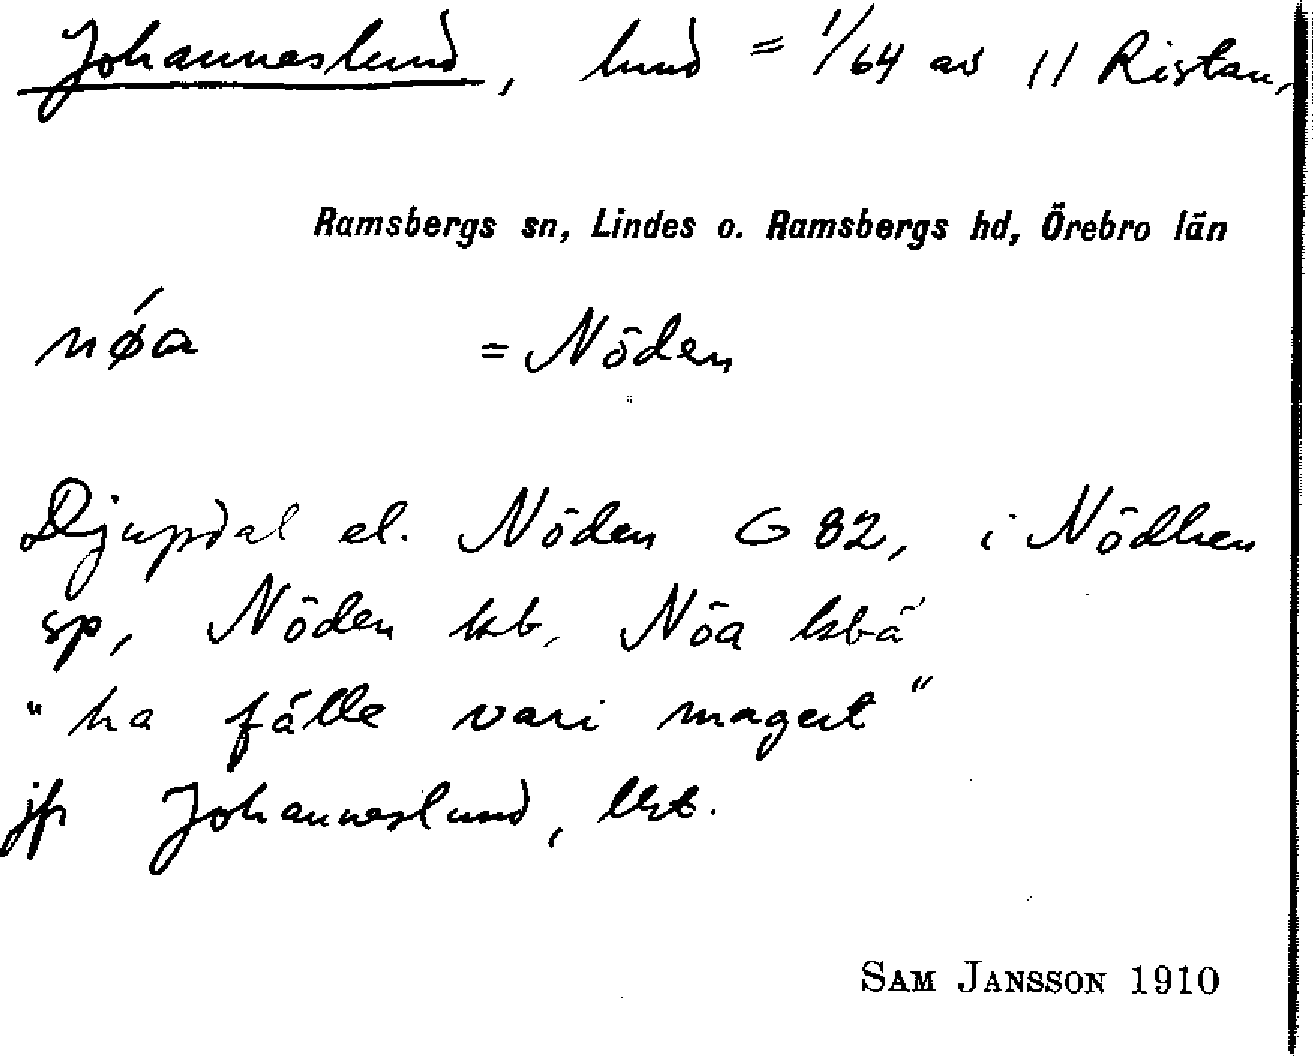 Johanneslund, hmd = 1/64 av 11 Ristan,
Ramsbergs sn, Lindes o. Ramsbergs hd, Örebro län
nǿa = Nöden
Djupdal el. Nöden G 82, i Nödhen
sp, Nöden kb, Nöa lsbä
"ha fälle vari magert"
jfr Johanneslund,
SAM JANSSON 1910